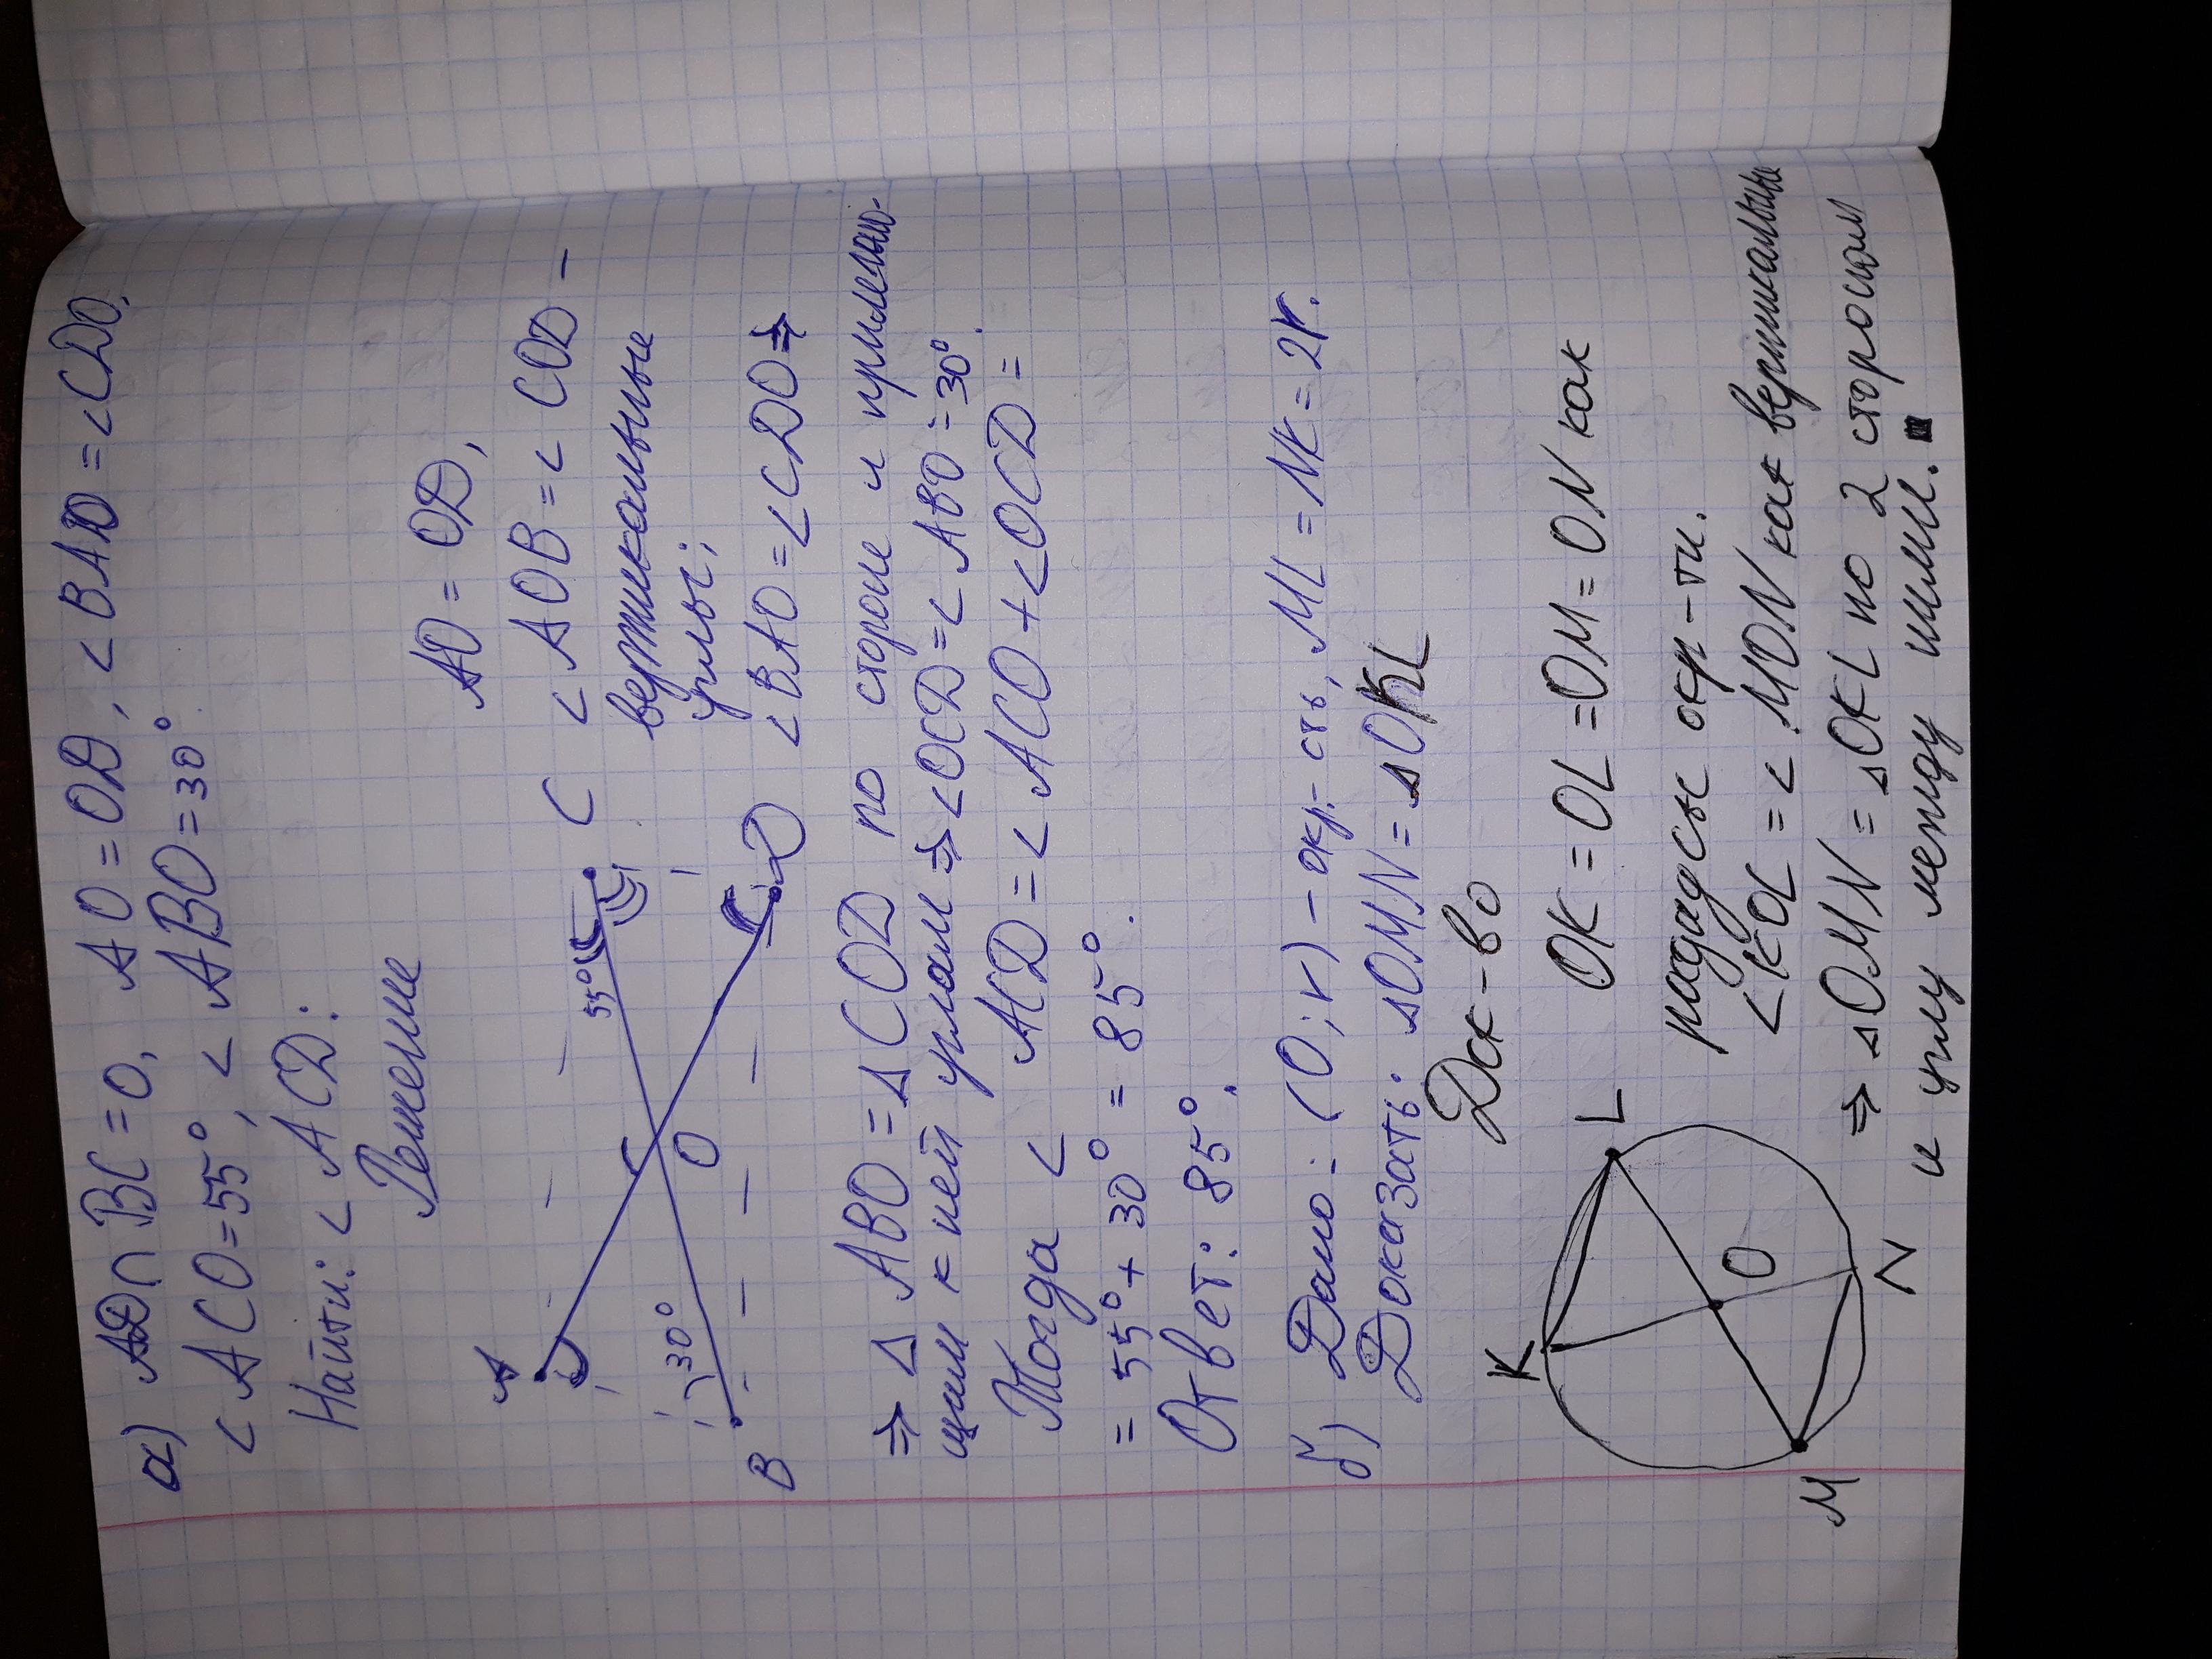 а) AD∩BC=O, AO=OD, ∠BAO=∠CDO,
∠ACO=55°, ∠ABO=30°.
Найти: ∠ACD.
Решение
A
B
C
D
O
55°
30°
AO=OD,
∠AOB=∠COD –
вертикальные
углы;
∠BAO=∠CDO⇒
⇒ ∆ABO=∆COD по стороне и прилежа-
щим к ней углам ⇒ ∠OCD=∠ABO=30°.
Тогда ∠ACD=∠ACO+∠OCD=
=55°+30°=85°.
Ответ: 85°.
б) Дано: (O;r) – окр.-сть, ML=NK=2r.
Доказать: ∆OMN=∆OKL
Док-во
K
L
O
M
N
OK=OL=OM=ON как
радиусы окр-ти.
∠KOL=∠MON как вертикальные
⇒ ∆OMN=∆OKL по 2 сторонам
и углу между ними.